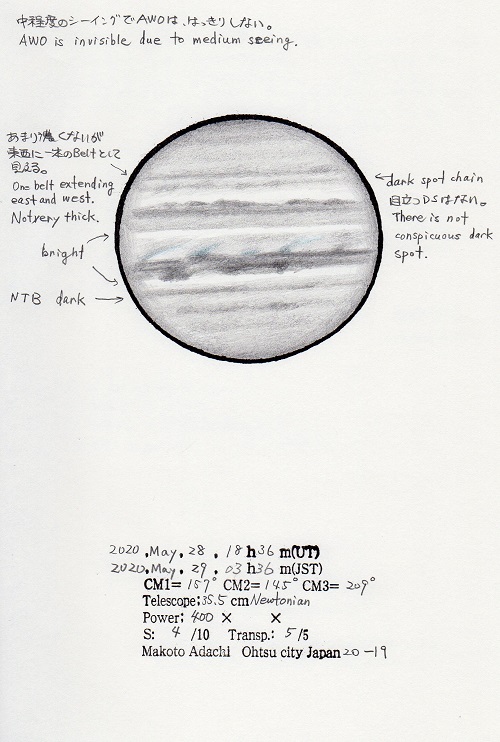 中程度のシーイングでAWOは、はっきりしない。
AWO is invisible due to medium seeing.
あまり濃くないが
東西に一本のBeltとして
見える。
One belt extending
east and west.
Not very thick.
bright
NTB dark
dark spot chain
目立つDSはない。
There is not
conspicuous dark
spot.
2020.May.28.18h36m(UT)
2020.May.29.03h36m(JST)
CM1=157° CM2=145° CM3=209°
Telescope;35.5cm Newtonian
Power; 400× ×
S: 4/10 Transp.: 5/5
Makoto Adachi Ohtsu city Japan 20-19